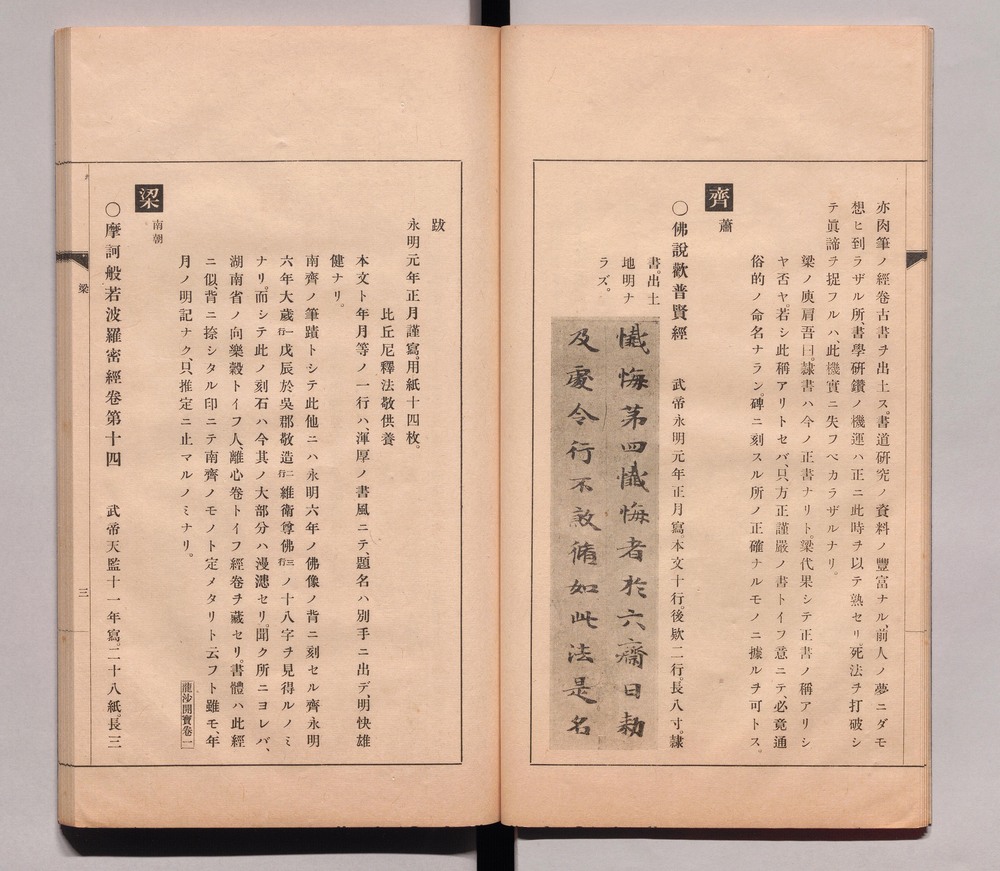 亦肉筆ノ經卷古書ヲ出土ス。書道研究ノ資料ノ豐富ナル、前人ノ夢ニダモ
想ヒ到ラザル所、書學研鑽ノ機運ハ正ニ此時ヲ以テ熟セリ。死法ヲ打破シ
テ眞諦ヲ捉フルハ、此機實ニ失フベカラザルナリ。
梁ノ庾肩吾曰。隷書ハ今ノ正書ナリト。梁代果シテ正書ノ稱アリシ
ヤ否ヤ。若シ此稱アリトセバ、只方正謹嚴ノ書トイフ意ニテ、必竟通
俗的ノ命名ナラン。碑ニ刻スル所ノ正確ナルモノニ據ルヲ可トス。
齊 蕭
〇佛說歡普賢經 武帝永明元年正月寫本文十行。後欵二行。長八寸。隷
書。出土
地明ナ
ラズ。
懺悔苐四懺悔者於六齋日勅
及處令行不敢脩如此法是名
跋
永明元年正月謹寫。用紙十四枚。
比丘尼釋法敬供養
本文ト年月等ノ一行ハ、渾厚ノ書風ニテ、題名ハ別手ニ出デ、明快雄
健ナリ。
南齊ノ筆蹟トシテ此他ニハ永明六年ノ佛像ノ背ニ刻セル齊永明
六年大歲一行戊辰於吳郡敬造二行維衛尊佛三行ノ十八字ヲ見得ルノミ
ナリ。而シテ此ノ刻石ハ今其ノ大部分ハ漫漶セリ。聞ク所ニヨレバ、
湖南省ノ向樂穀トイフ人、離心卷トイフ經卷ヲ藏セリ。書體ハ此經
ニ似、背ニ捺シタル印ニテ南齊ノモノト定メタリト云フト雖モ、年
月ノ明記ナク、只推定ニ止マルノミナリ。
龍沙開寶卷一
梁 南朝
〇摩訶般若波羅密經卷第十四 武帝天監十一年寫。二十八紙。長三
梁
三